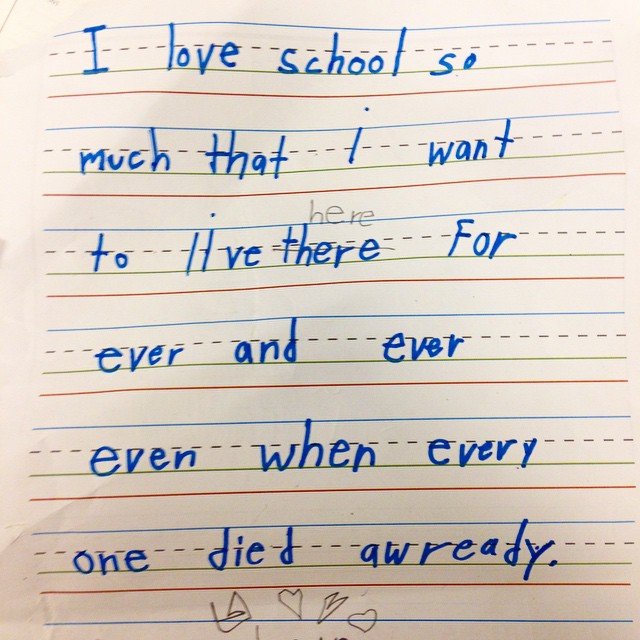 I love school so
much that i want
here
to live there For
ever and ever
even when every
one died awready.